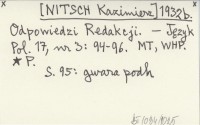 [NITSCH Kazimierz] 1932b.
Odpowiedzi Redakcji. — Język
Pol. 17, nr 3: 94-96. MT, WHP.
* P.
S. 95: gwara podh